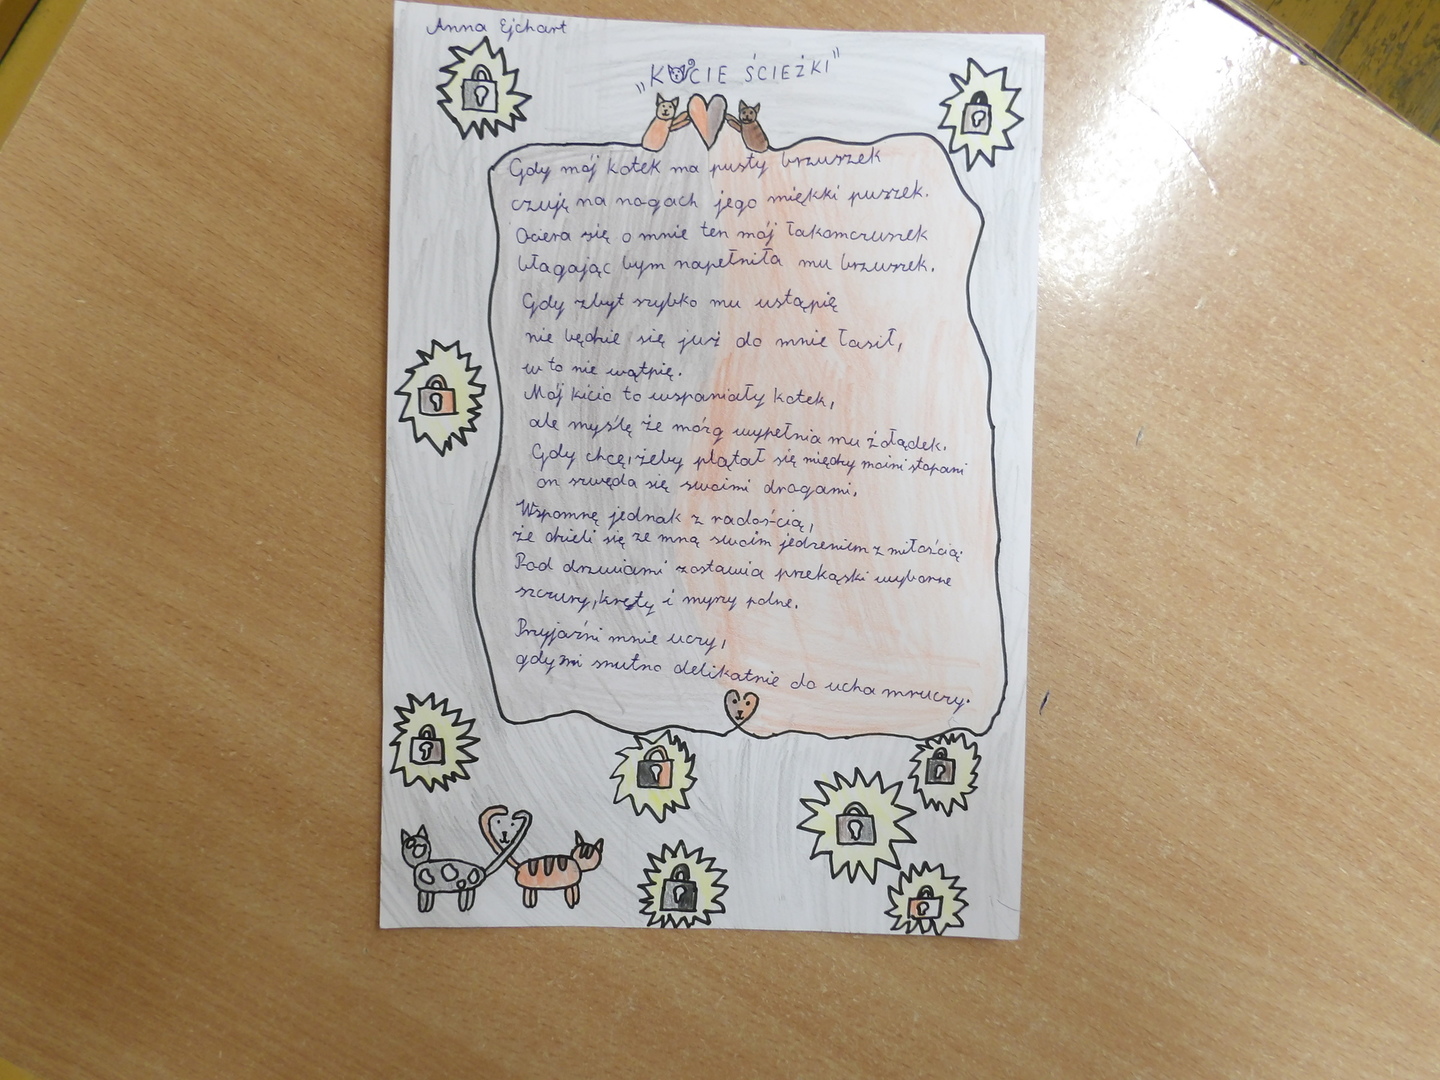 Anna Ejchart
„KOCIE ŚCIEŻKI"
Gdy mój kotek ma pusty brzuszek
czuję na nogach jego miękki puszek.
Ociera się o mnie ten mój łakomczuszek
błagając bym napełniła mu brzuszek.
Gdy zbyt szybko mu ustąpię
nie będzie się już do mnie łasił,
w to nie wątpię.
Mój kicio to wspaniały kotek,
ale myślę że mózg wypełnia mu żołądek.
Gdy chcę, żeby plątał się między moimi stopami
on szwęda się swoimi drogami.
Wspomnę jednak z radością,
że dzieli się ze mną swoim jedzeniem z miłością.
Pod drzwiami zostawia przekąski wyborne
szczury, krety i myszy polne.
Przyjaźni mnie uczy,
gdy mi smutno delikatnie do ucha mruczy.